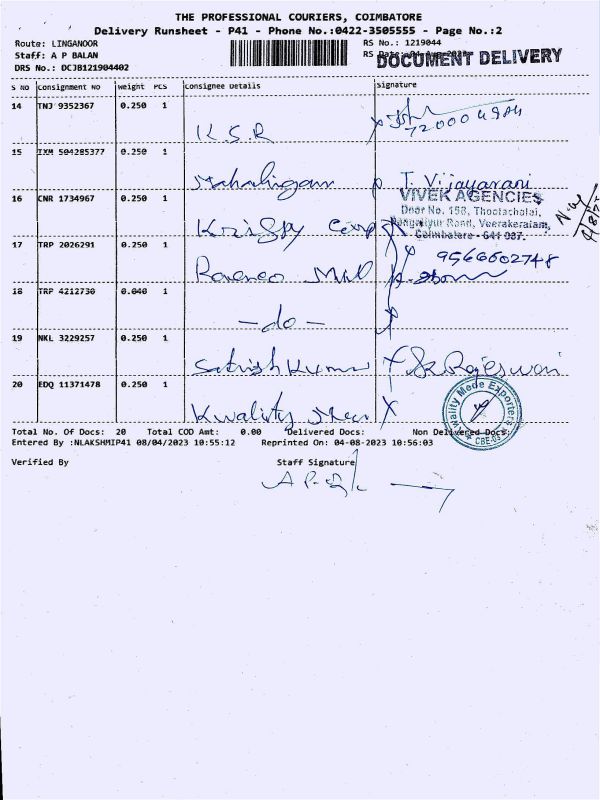 THE PROFESSIONAL COURIERS, COIMBATORE
Delivery Runsheet - P41 - Phone No.:0422-3505555 - Page No.:2
Route: LINGANOOR
RS No.: 1219044
Staff: A P BALAN
RS Date: 04-Aug-2023
DOCUMENT DELIVERY
DRS No.: DCJB121904402
S NO Consignment NO Weight PCS Consignee Details Signature
14 TNJ 9352367 0.250 1
K.S.R
15 IXM 504285377 0.250 1
Mahalingam T. Vijayarani
16 CNR 1734967 0.250 1
VIVEK AGENCIES
Door No. 158, Thootachalai,
Veerakeralam,
Coimbatore - 641 007.
Krispy Corp
17 TRP 2026291 0.250 1
9566602748
18 TRP 4212730 0.040 1
- do -
19 NKL 3229257 0.250 1
Sathish Kumar Rajeswari
20 EDQ 11371478 0.250 1
Kwality
Kwality Mede Exporters
CBE-03
Total No. Of Docs: 20 Total COD Amt: 0.00 Delivered Docs: Non Delivered Docs:
Entered By :NLAKSHMIP41 08/04/2023 10:55:12 Reprinted On: 04-08-2023 10:56:03
Verified By Staff Signature